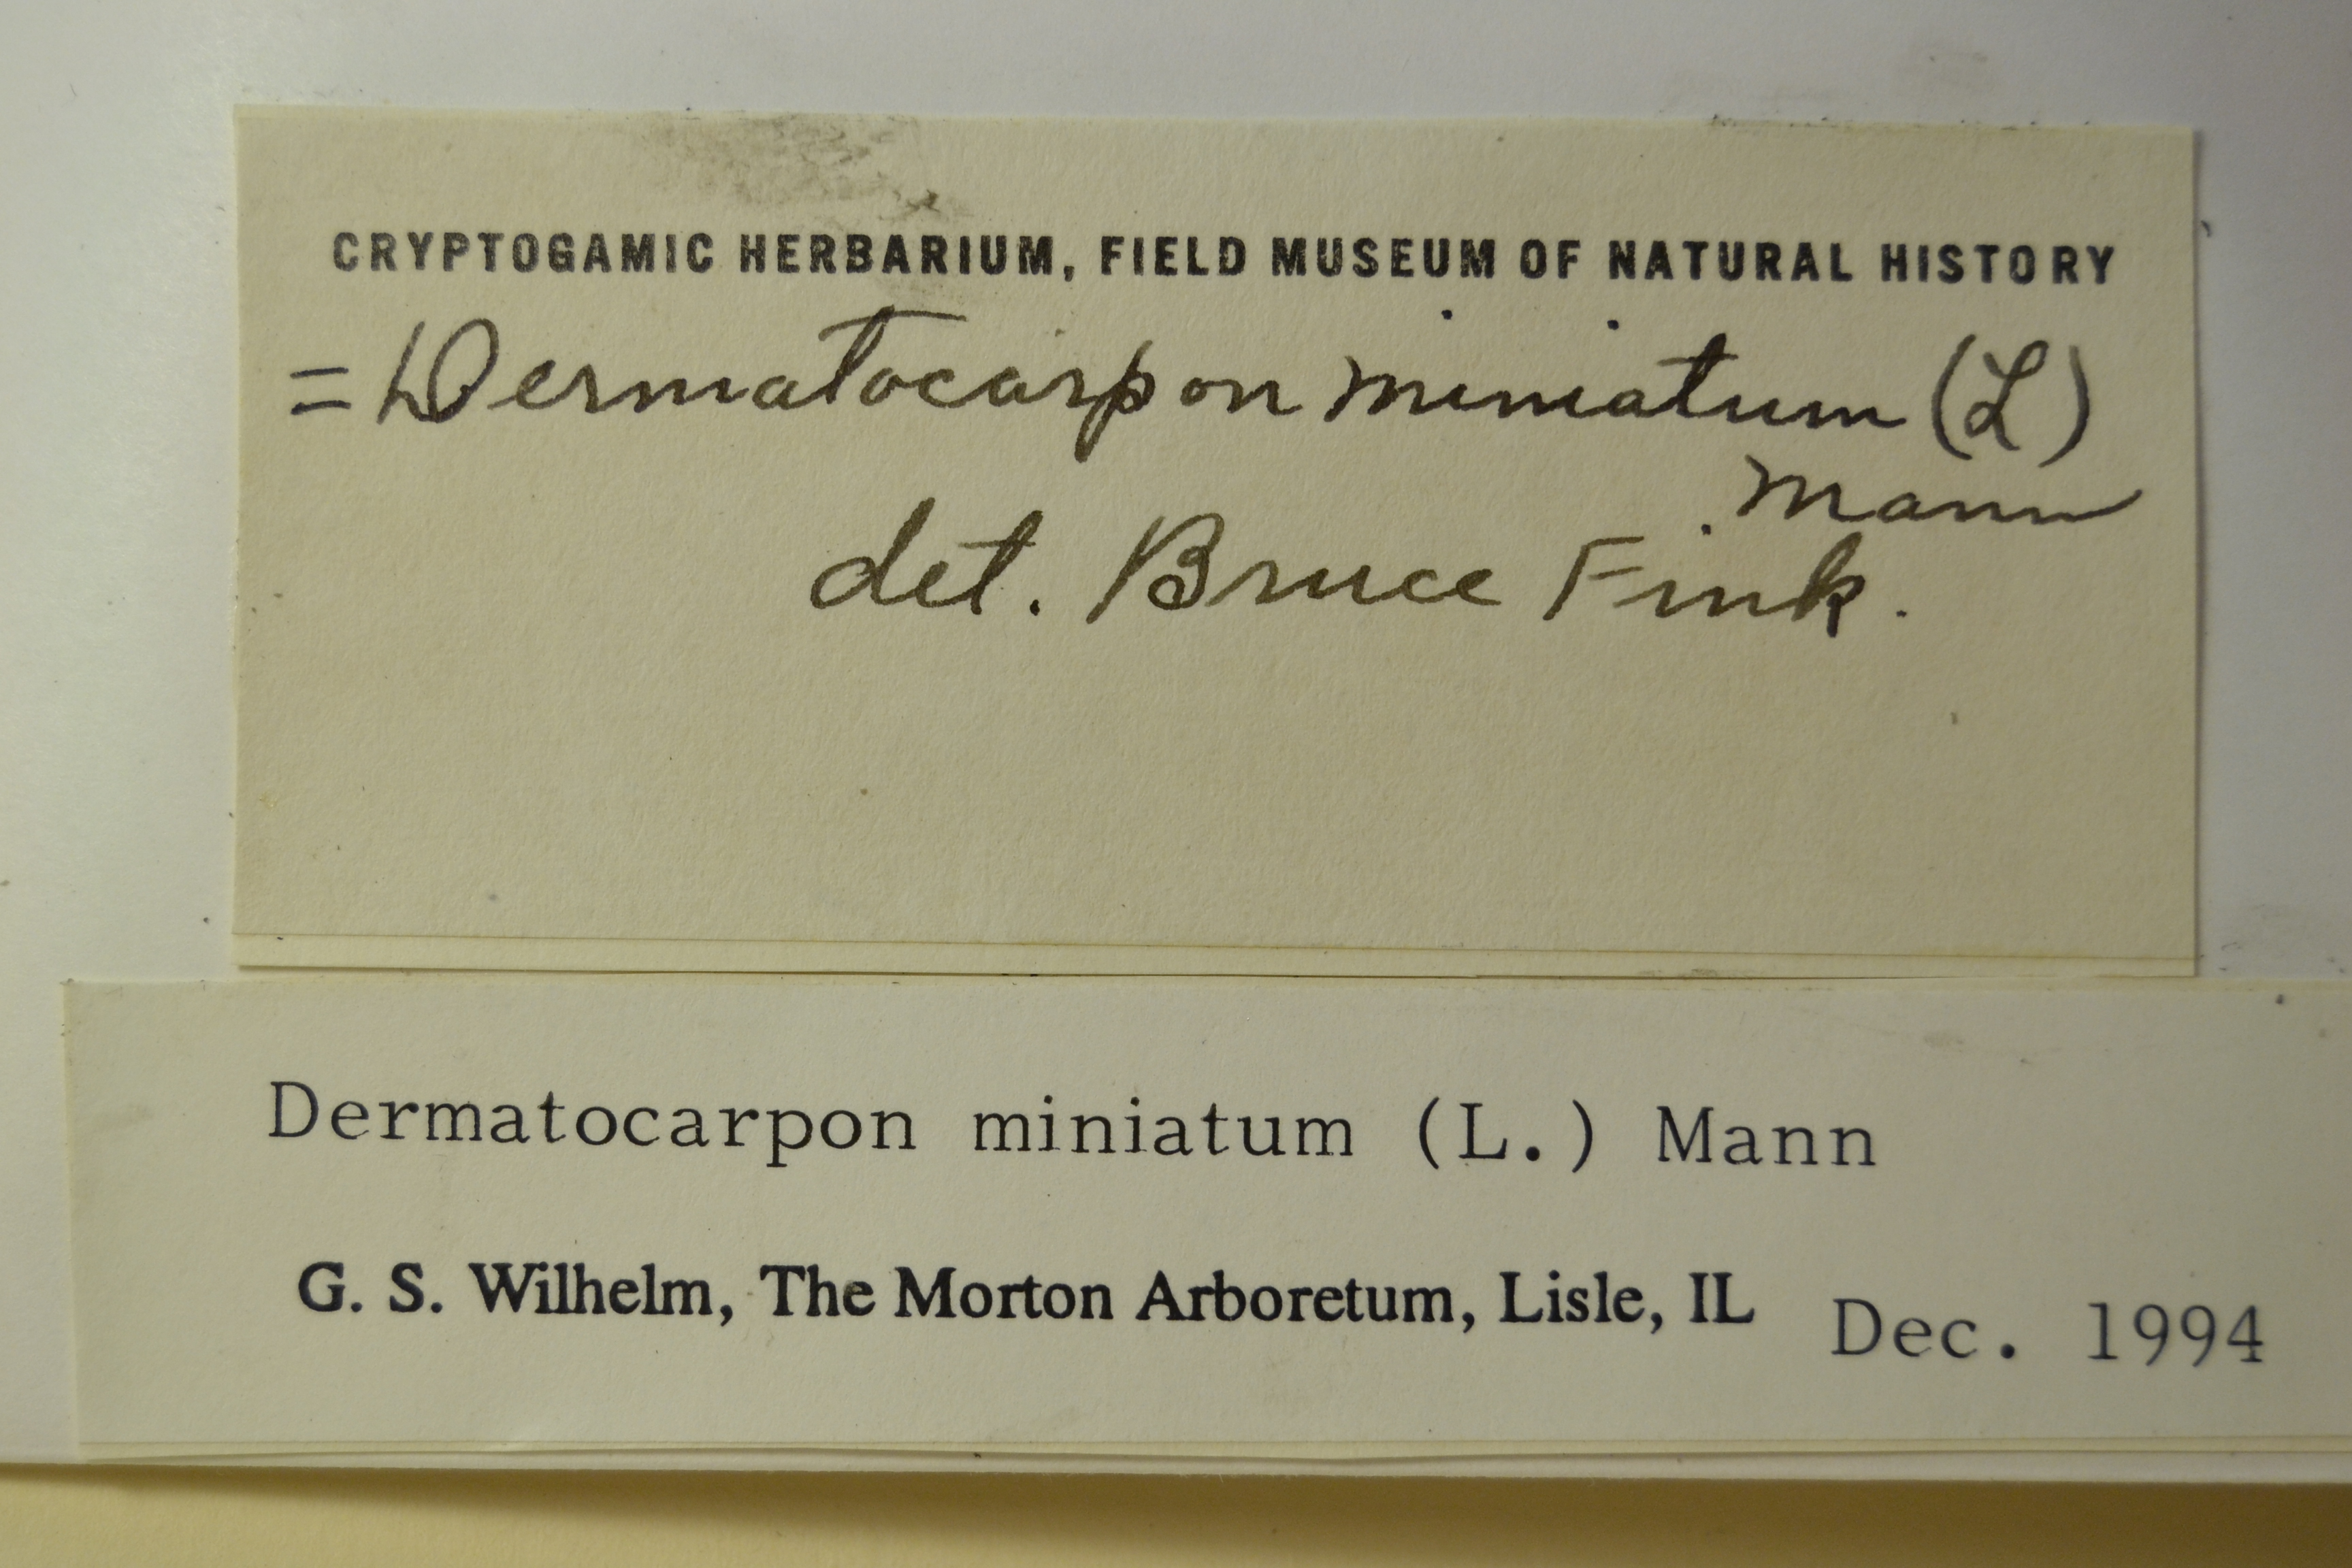 CRYPTOGAMIC HERBARIUM, FIELD MUSEUM OF NATURAL HISTORY
= Dermatocarpon miniatum (L)
Mann
det. Bruce Fink.
Dermatocarpon miniatum (L.) Mann
G. S. Wilhelm, The Morton Arboretum, Lisle, IL Dec. 1994